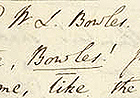 W. L. Bowles
e, Bowles!
me, like the